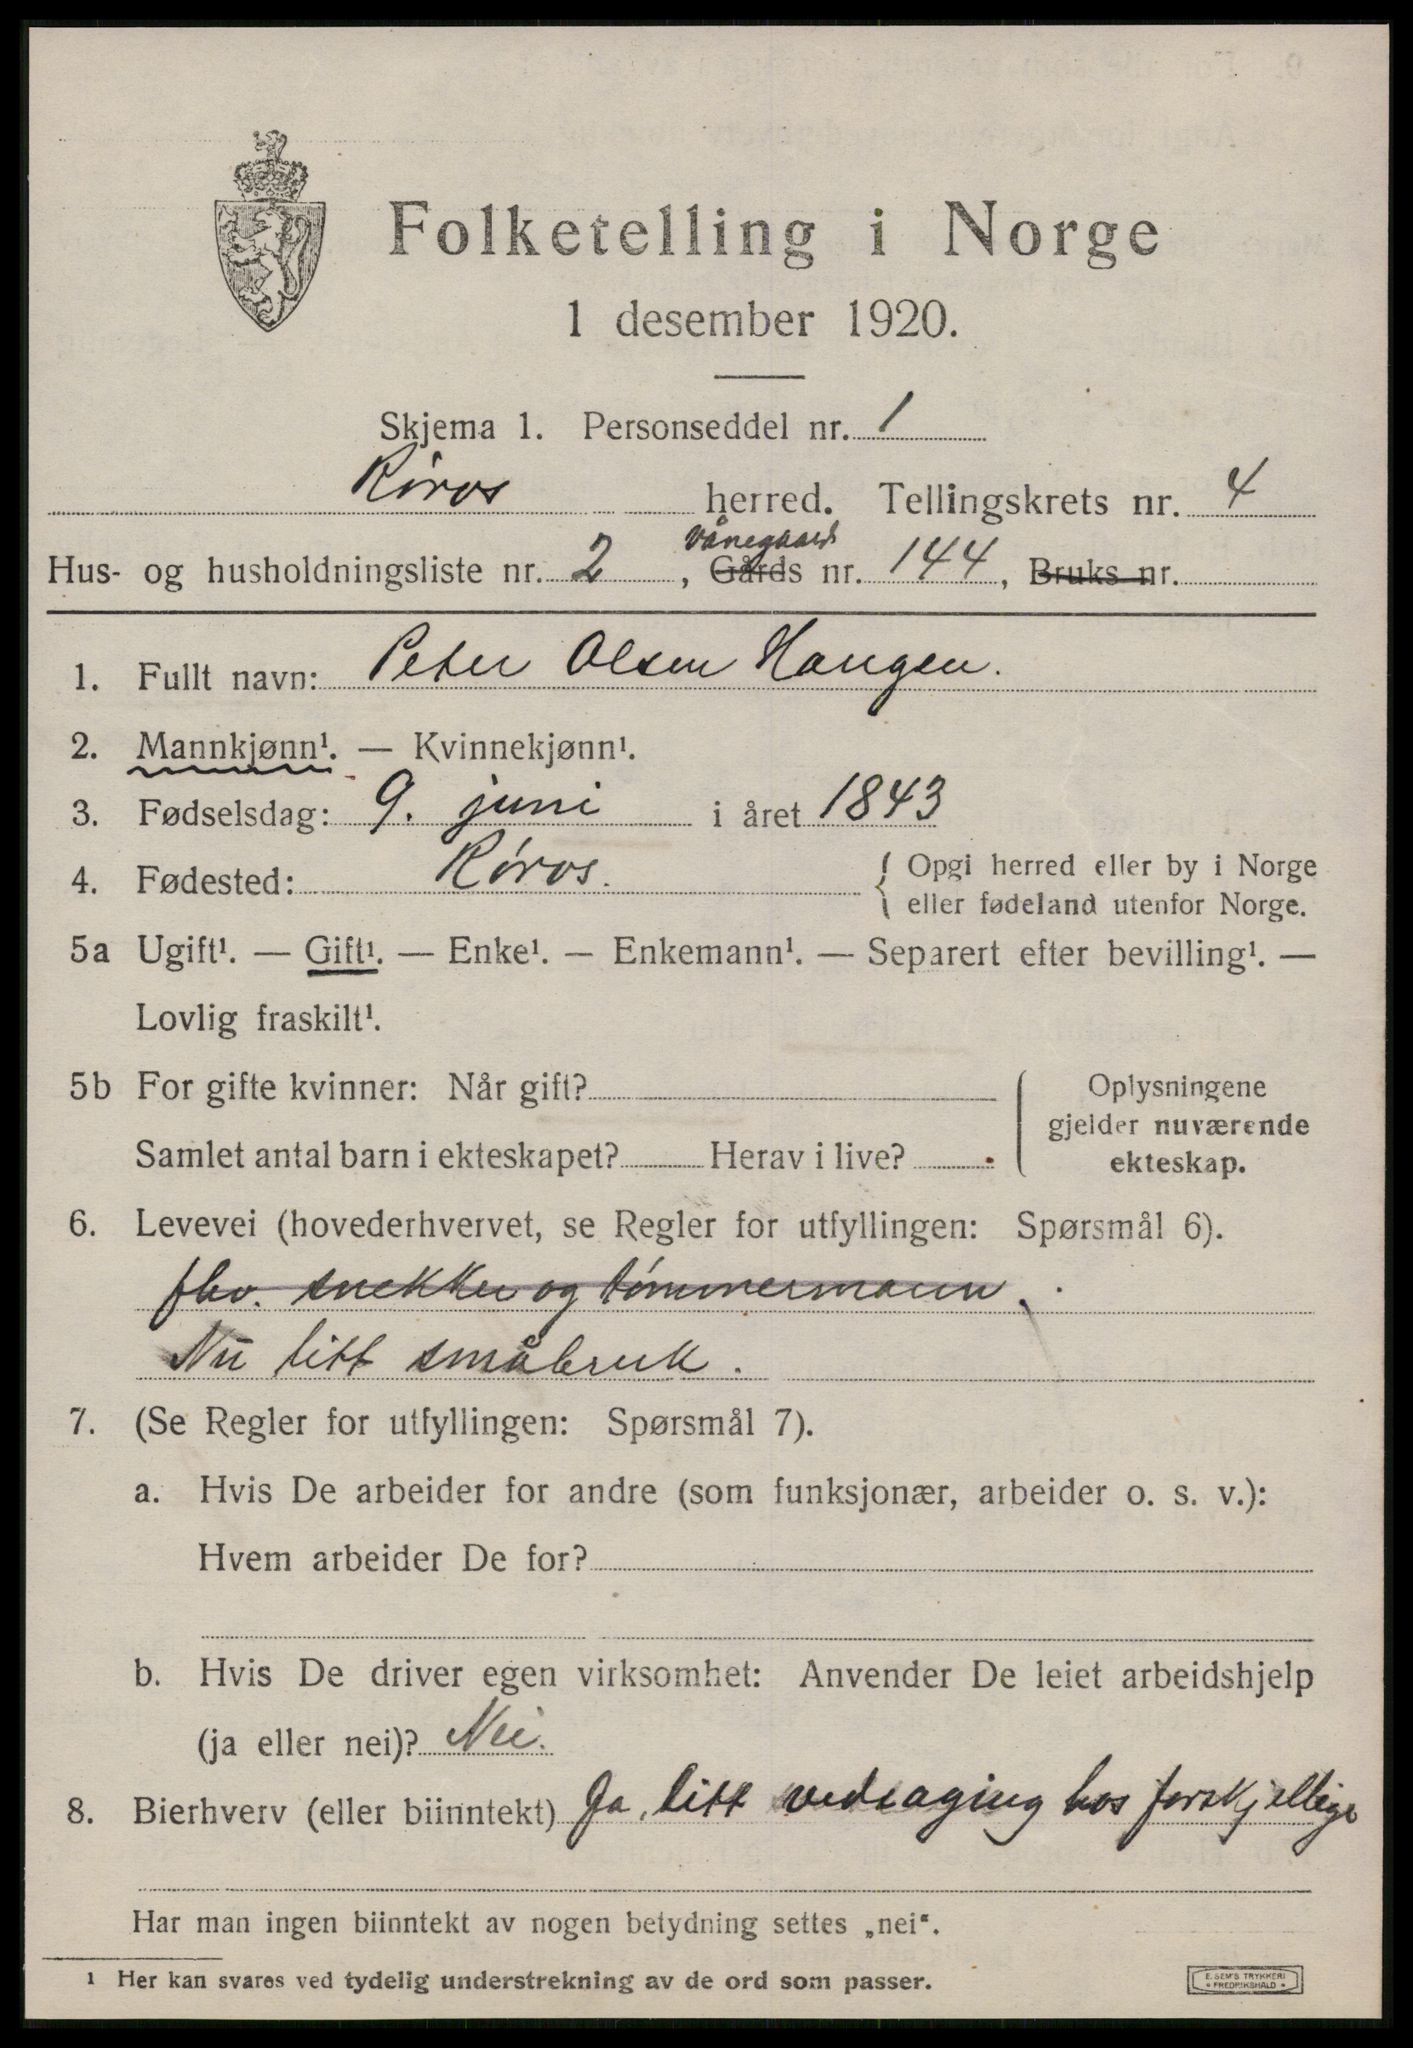 Folketelling i Norge
1 desember 1920.
Skjema 1. Personseddel nr. 1
Røros herred. Tellingskrets nr. 4
vånegaards
Hus- og husholdningsliste nr. 2, Gårds nr. 144, Bruks nr.
1. Fullt navn: Peter Olsen Haugen.
2. Mannkjønn¹. — Kvinnekjønn¹.
3. Fødselsdag: 9. juni i året 1843
4. Fødested: Røros. { Opgi herred eller by i Norge
eller fødeland utenfor Norge.
5a Ugift¹. — Gift¹. — Enke¹. — Enkemann¹. — Separert efter bevilling¹. —
Lovlig fraskilt¹.
5b For gifte kvinner: Når gift?
Samlet antal barn i ekteskapet? Herav i live?
Oplysningene
gjelder nuværende
ekteskap.
6. Levevei (hovederhvervet, se Regler for utfyllingen: Spørsmål 6).
fhv. snekker og tømmermann.
Nu litt småbruk.
7. (Se Regler for utfyllingen: Spørsmål 7).
a. Hvis De arbeider for andre (som funksjonær, arbeider o. s. v.):
Hvem arbeider De for?
b. Hvis De driver egen virksomhet: Anvender De leiet arbeidshjelp
(ja eller nei)? Nei.
8. Bierhverv (eller biinntekt) Ja, litt vedsaging hos forskjellige
Har man ingen biinntekt av nogen betydning settes „nei“.
1 Her kan svares ved tydelig understrekning av de ord som passer.
E. SEM'S TRYKKERI
FREDRIKSHALD